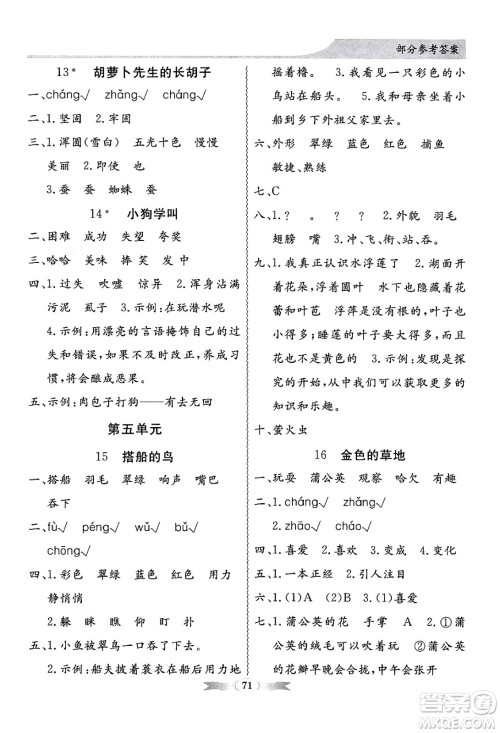 部分参考答案
13* 胡萝卜先生的长胡子
一、cháng√ zhǎng√ cháng√
二、1.坚固 2.牢固
三、1.浑圆(雪白) 五光十色 慢慢
美丽 2.即使 也
3.蚕 蚕 蜘蛛 蚕
14* 小狗学叫
二、困难 成功 失望 夸奖
三、哈哈 美味 捧 笑 发 中
四、1.过失 吹嘘 惊异 2.浑身湿透
污泥 虱子 3.示例:在玩潜水呢
4.示例:用漂亮的言语掩饰自己的过失
和错误,如果不及时改正,再碰到困难
时,将会酿成恶果。
五、示例:肉包子打狗——有去无回
第五单元
15 搭船的鸟
一、搭船 羽毛 翠绿 响声 嘴巴
吞下
二、fù√ péng√ wǔ√ gǔ√
chōng√
四、1.彩色 翠绿 蓝色 红色 用力
静悄悄
2.躲 眯 瞧 仰 盯
3.示例:翠鸟一口把小鱼吞了下去。
五、1.示例:船夫披着蓑衣在船后用力地
摇着橹。 2.示例:我看见一只彩色的小
鸟站在船头。 3.我和母亲坐着小
船到乡下外祖父家里去。
六、外形 翠绿 蓝色 红色 捕鱼
敏捷、熟练
七、C
八、1.? 。 ? 。 2.外貌 羽毛
翅膀 嘴 3.冲 飞 衔 站 吞
九、1.我真正认识水浮莲了 2.湖面开
阔 浮萍 圆叶 浮萍 隐藏的花
蕾和叶苞 浮萍是没有的,叶子也
小得多;睡莲的叶子要大得多,而且
花也不是黄色的 3.示例:发现是探
索的开始,我们可以获取到更多的
知识和乐趣。
十、萤火虫
16 金色的草地
一、玩耍 蒲公英 观察 哈欠 有趣
二、1.cháng√ zhǎng√
2.zhāo√ cháo√
三、1.喜爱 2.喜欢 3.喜爱
五、1.一本正经 2.引人注目
六、1.(1)A (2)B 2.(1)喜爱
七、1.蒲公英的花 手掌 A 2.①蒲
公英的绒毛可以吹着玩 ②蒲公英
的花瓣早晨张开,中午会张开
71
答案圈
MXEQ.COM